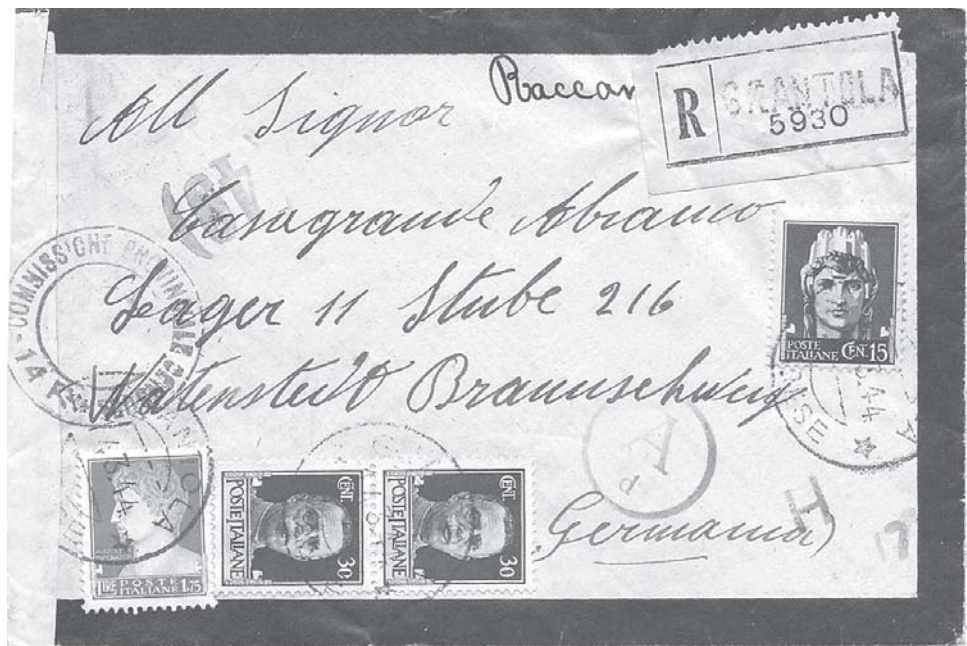 Raccom
R GRANTOLA
5930
All Signor
Casagrande Abramo
Lager 11 Stube 216
Watenstedt Braunschweig
Germania
COMMISSIONE PROVINCIALE
14
POSTE
ITALIANE CEN. 15
3.44
SE
LIRE POSTE ITALIANE 1,75
3.44
OLA
POSTE ITALIANE CENT. 30
POSTE ITALIANE CENT. 30
A
P
H